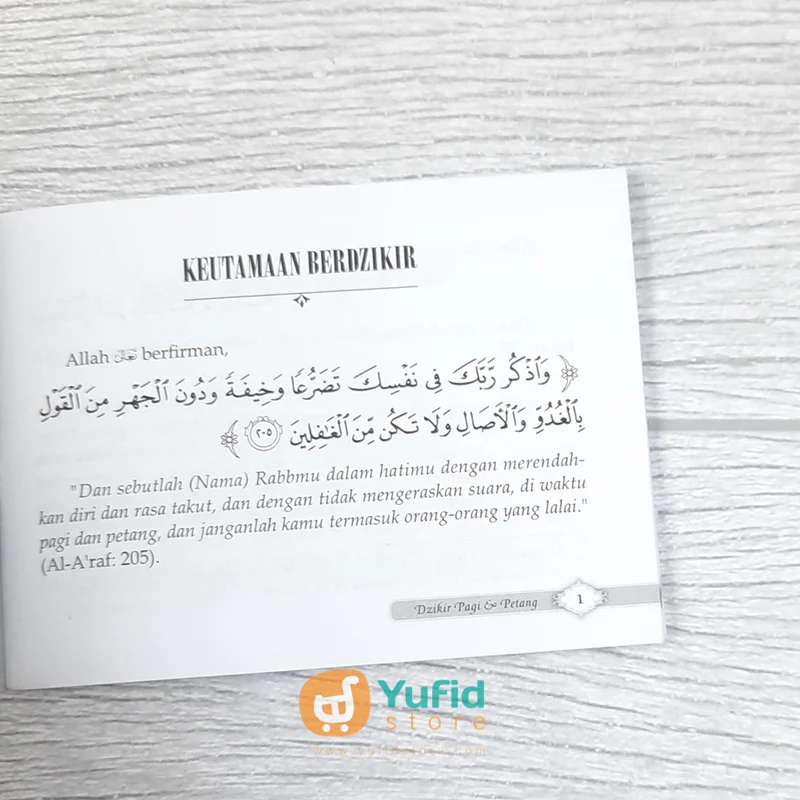 KEUTAMAAN BERDZIKIR
Allah ﷻ berfirman,
﴿ وَٱذْكُر رَّبَّكَ فِى نَفْسِكَ تَضَرُّعًا وَخِيفَةً وَدُونَ ٱلْجَهْرِ مِنَ ٱلْقَوْلِ
بِٱلْغُدُوِّ وَٱلْأَصَالِ وَلَا تَكُن مِّنَ ٱلْغَٰفِلِينَ ٢٠٥ ﴾
"Dan sebutlah (Nama) Rabbmu dalam hatimu dengan merendah-
kan diri dan rasa takut, dan dengan tidak mengeraskan suara, di waktu
pagi dan petang, dan janganlah kamu termasuk orang-orang yang lalai."
(Al-A'raf: 205).
Dzikir Pagi & Petang 1
Yufid
store
www.yufidstore.com